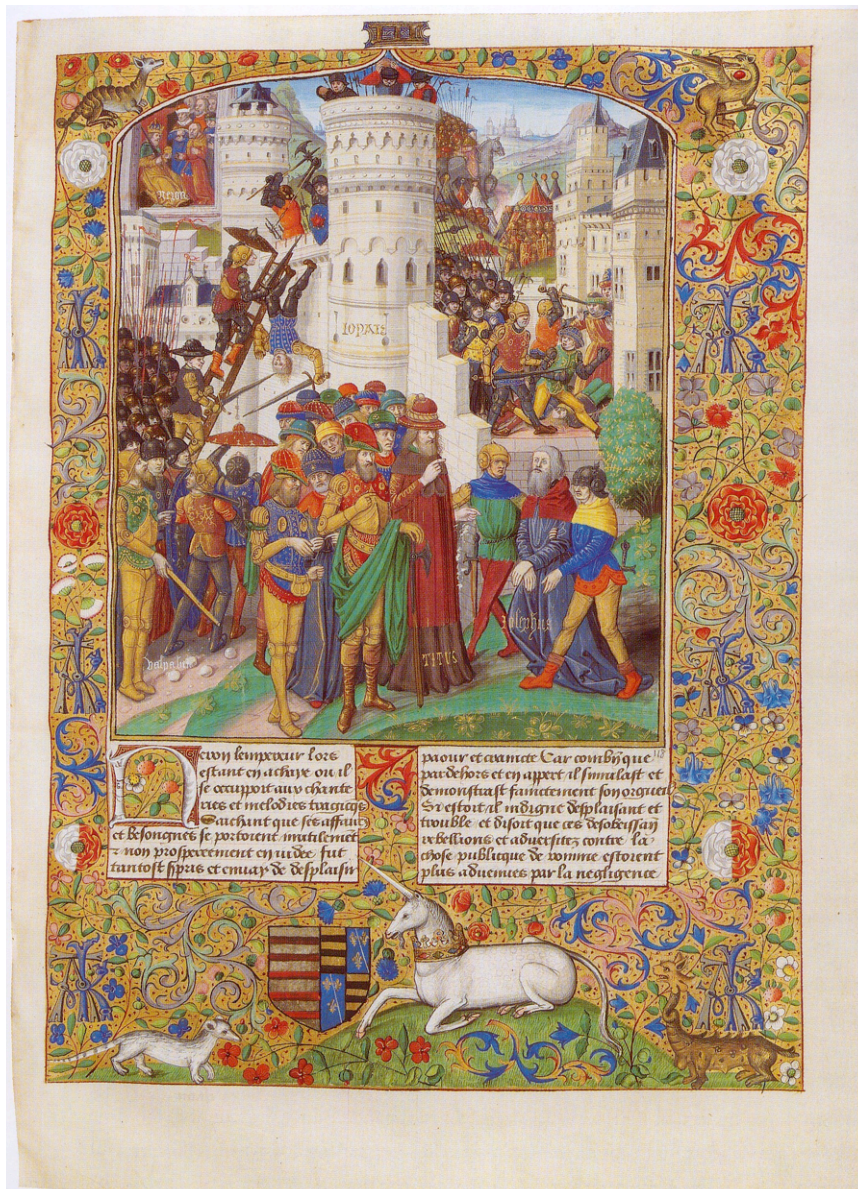 Neron
IOPAIE
Josephus
TITUS
Neron lempereur lors
estant en achaye ou il
se occuppoit aux chante
ries et melodies tragicqs
Sachant que ses affaires
et besongnes se portoient inutilemēt
non prosperement en iudee fut
tantost spris et envay de desplaisir
paour et craincte Car combyn que
par dehors et en appert il simulast et
demonstrast faintement son orgueil
Si estoit il indigne desplaisant et
trouble et disoit que ces desobeissan
rebellions et adversitez contre la
chose publique de romme estoient
plus advenues par la negligence